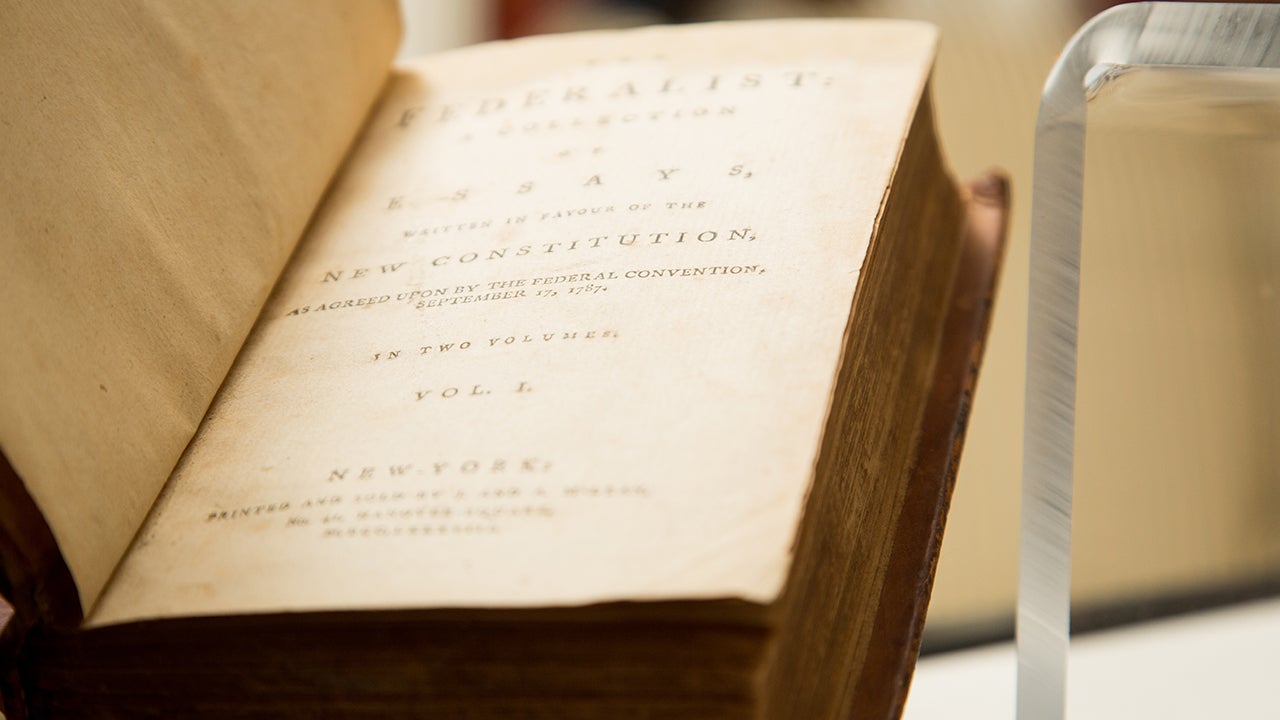 FEDERALIST:
A COLLECTION
OF
ESSAYS,
WRITTEN IN FAVOUR OF THE
NEW CONSTITUTION,
AS AGREED UPON BY THE FEDERAL CONVENTION,
SEPTEMBER 17, 1787.
IN TWO VOLUMES.
VOL. I.
NEW-YORK:
PRINTED AND SOLD BY J. AND A.